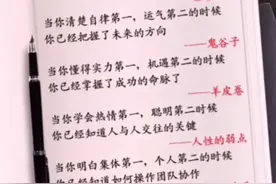 当你清楚自律第一，运气第二的时候
你已经把握了未来的方向
——鬼谷子
当你懂得实力第一，机遇第二的时候
你已经掌握了成功的命脉了
——羊皮卷
当你学会热情第一，聪明第二的时候
你已经知道人与人交往的关键
——人性的弱点
当你明白集体第一，个人第二的时候
你已经知道如何操作团队协作